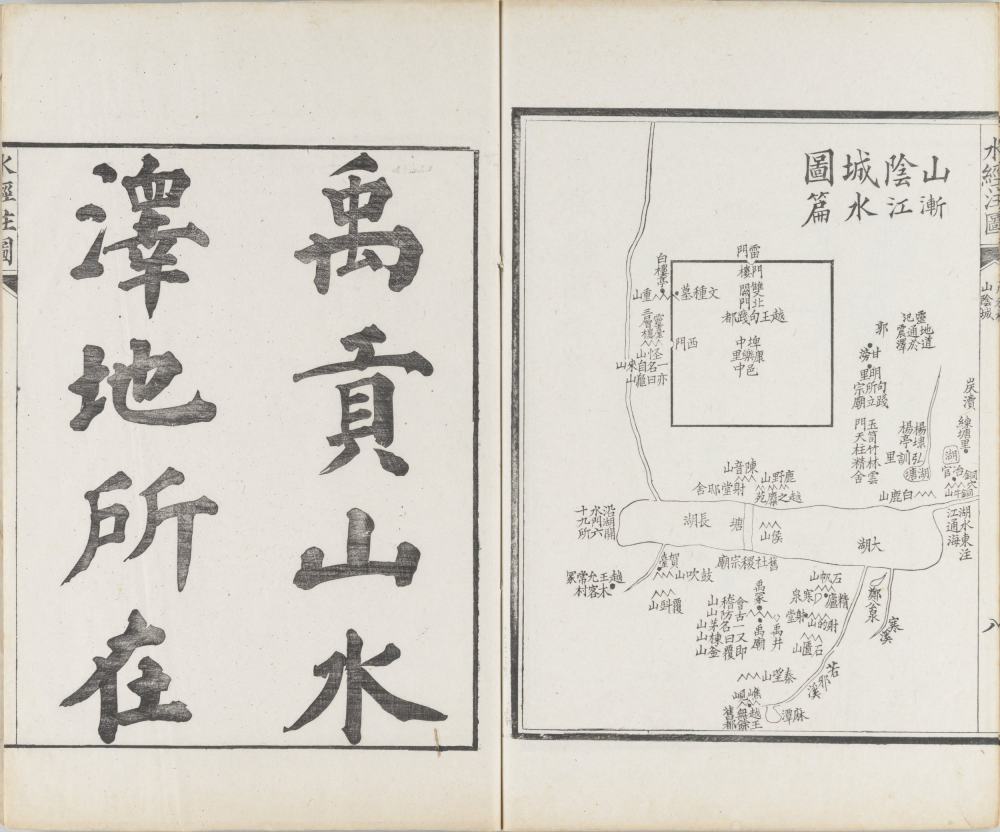 水經注圖
山陰城
八
山陰城圖
漸江水篇
雷門
門樓
雙闕
北門
越王句踐都
埤中
康樂里
邑中
西門
白樓亭
重山
文種墓
靈臺
三層樓
怪山
一名自來山
亦曰龜山
郭
靈汜
地道通於震澤
甘滂
明里
句踐所立宗廟
玉笥竹林雲
門天柱精舍
楊亭
里
湖塘
炭瀆
練塘里
湖
冶官
銅牛山
白鹿山
湖水東注
江通海
陳音山
射堂邸舍
鹿野山
越之麋苑
沿湖開
水門六
十九所
長湖
塘
侯山
大湖
舊社稷宗廟
賀臺
鼓吹山
越王允常冢
木客村
覆斝山
禹冢
禹井
禹廟
會稽山
古防山
一名茅山
又曰棟山
即覆釜山
石帆山
精廬
寒泉
射堂
射的山
石匱山
鄭公泉
寒溪
若邪溪
秦望山
嶕峴
越王無餘舊都
麻潭
禹貢山水
澤地所在
水經注圖